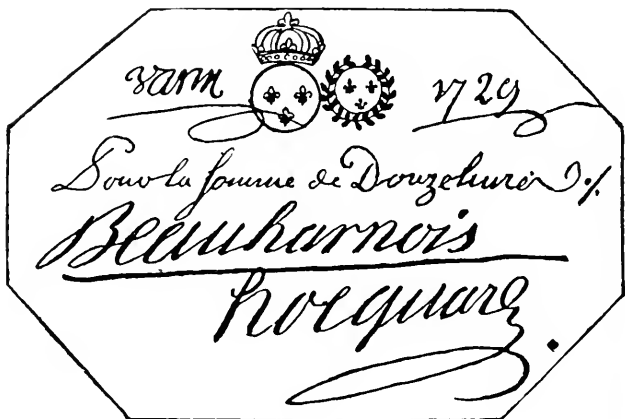 varin 1729
Pour la somme de Douze livres
Beauharnois
hocquart